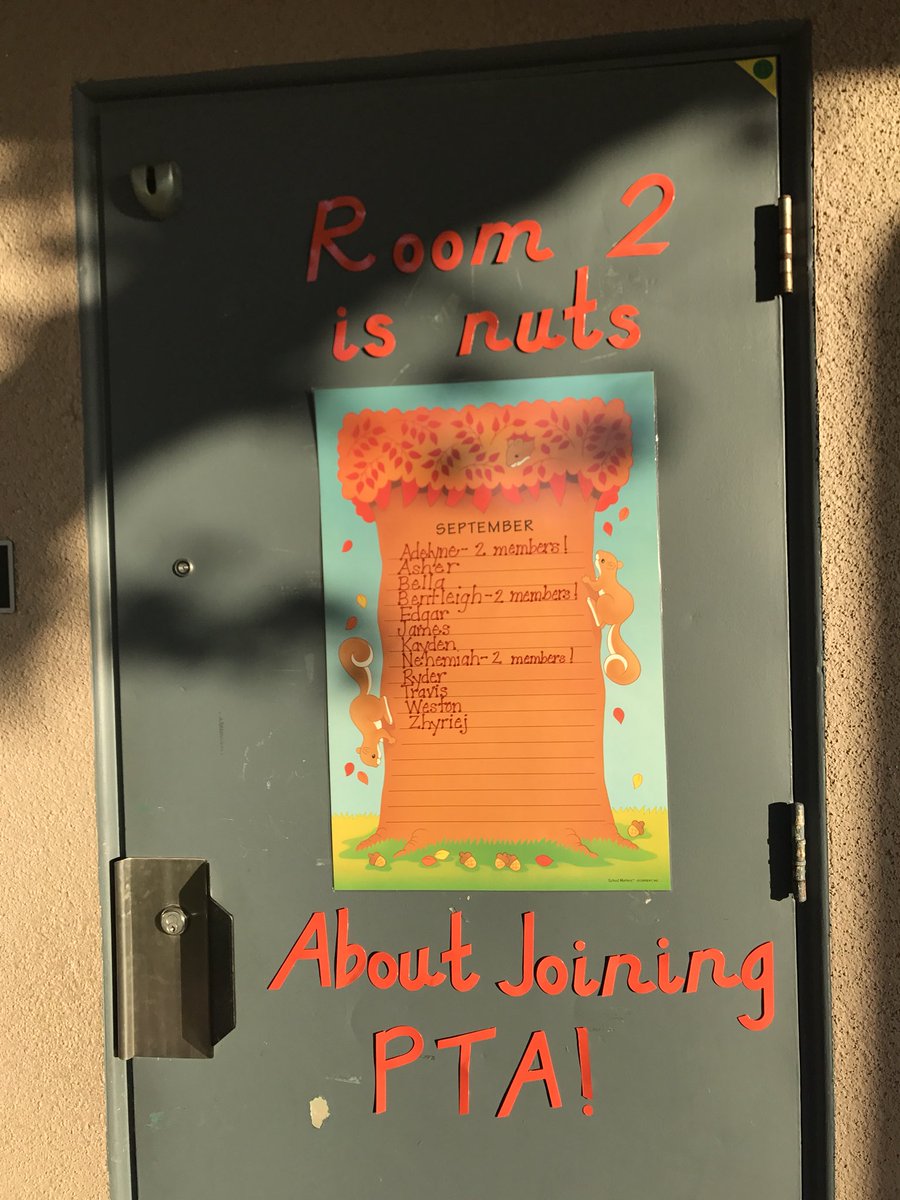 Room 2
is nuts
SEPTEMBER
Adelyne- 2 members!
Asher
Bella
Bentleigh-2 members!
Edgar
James
Kayden
Nehemiah-2 members!
Ryder
Travis
Weston
Zhyriej
About Joining
PTA!